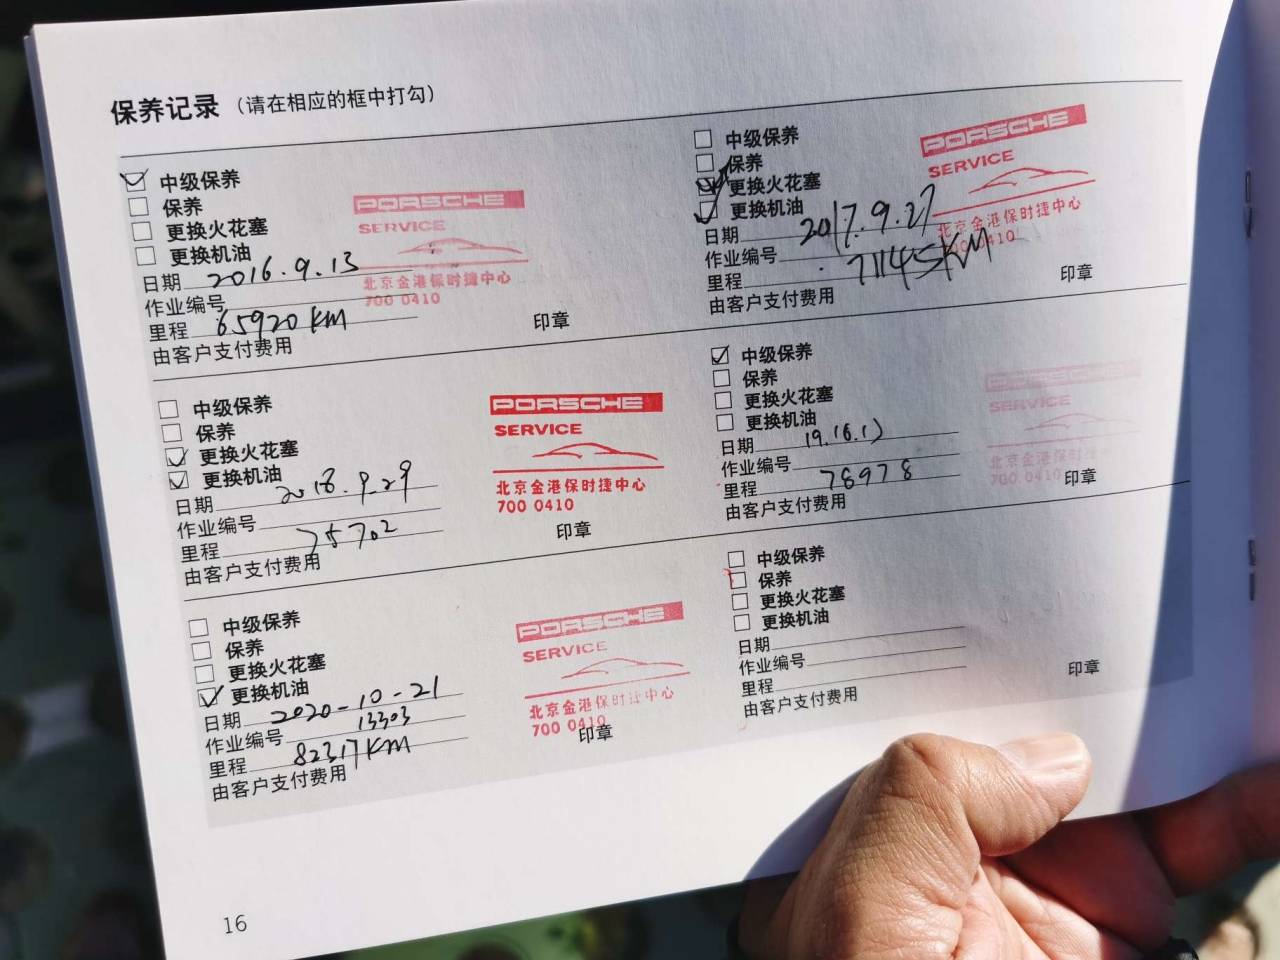 保养记录（请在相应的框中打勾）
中级保养
保养
更换火花塞
更换机油
日期 2016.9.13
作业编号
里程 65920KM
由客户支付费用
PORSCHE
SERVICE
北京金港保时捷中心
700 0410
印章
中级保养
保养
更换火花塞
更换机油
日期 2017.9.27
作业编号
里程 71145KM
由客户支付费用
PORSCHE
SERVICE
北京金港保时捷中心
700 0410
印章
中级保养
保养
更换火花塞
更换机油
日期 2018.9.29
作业编号
里程 75702
由客户支付费用
PORSCHE
SERVICE
北京金港保时捷中心
700 0410
印章
中级保养
保养
更换火花塞
更换机油
日期
作业编号
里程 78978
由客户支付费用
PORSCHE
SERVICE
北京金港保时捷
700 0410
印章
中级保养
保养
更换火花塞
更换机油
日期 2020-10-21
作业编号 13303
里程 82317KM
由客户支付费用
PORSCHE
SERVICE
北京金港保时捷中心
700 0410
印章
中级保养
保养
更换火花塞
更换机油
日期
作业编号
里程
由客户支付费用
印章
16